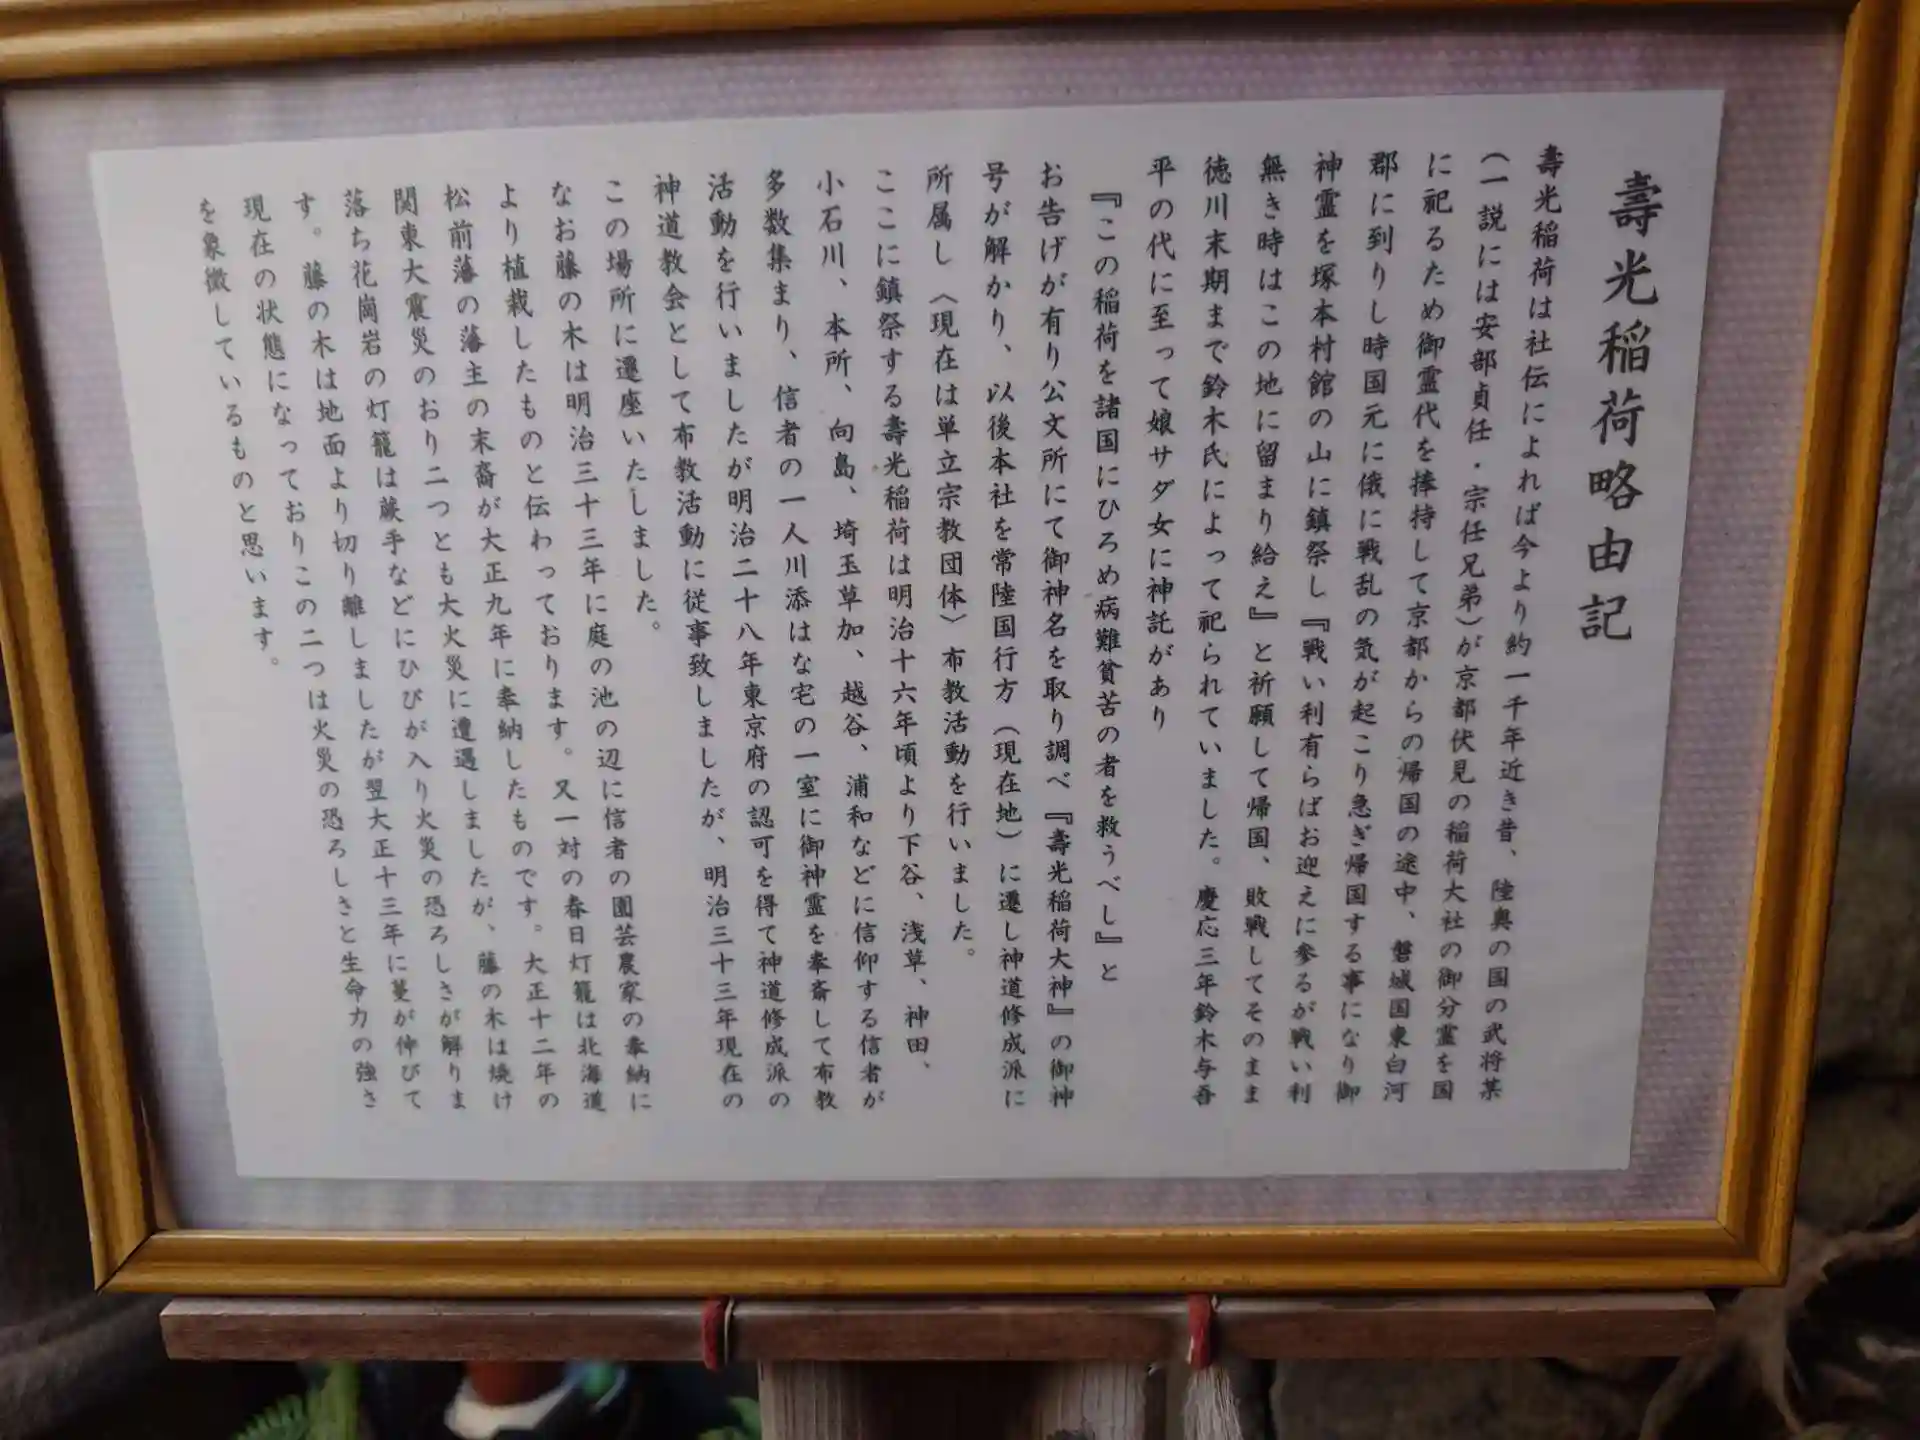 壽光稲荷略由記
壽光稲荷は社伝によれば今より約一千年近き昔、陸奥の国の武将某
(一説には安部貞任・宗任兄弟)が京都伏見の稲荷大社の御分霊を国
に祀るため御霊代を捧持して京都からの帰国の途中、磐城国東白河
郡に到りし時国元に俄に戦乱の気が起こり急ぎ帰国する事になり御
神霊を塚本村館の山に鎮祭し『戦い利有らばお迎えに参るが戦い利
無き時はこの地に留まり給え』と祈願して帰国、敗戦してそのまま
徳川末期まで鈴木氏によって祀られていました。慶応三年鈴木与吾
平の代に至って娘サダ女に神託があり
『この稲荷を諸国にひろめ病難貧苦の者を救うべし』と
お告げが有り公文所にて御神名を取り調べ『壽光稲荷大神』の御神
号が解かり、以後本社を常陸国行方(現在地)に遷し神道修成派に
所属し〈現在は単立宗教団体〉布教活動を行いました。
ここに鎮祭する壽光稲荷は明治十六年頃より下谷、浅草、神田、
小石川、本所、向島、埼玉草加、越谷、浦和などに信仰する信者が
多数集まり、信者の一人川添はな宅の一室に御神霊を奉斎して布教
活動を行いましたが明治二十八年東京府の認可を得て神道修成派の
神道教会として布教活動に従事致しましたが、明治三十三年現在の
この場所に遷座いたしました。
なお藤の木は明治三十三年に庭の池の辺に信者の園芸農家の奉納に
より植栽したものと伝わっております。又一対の春日灯籠は北海道
松前藩の藩主の末裔が大正九年に奉納したものです。大正十二年の
関東大震災のおり二つとも大火災に遭遇しましたが、藤の木は焼け
落ち花崗岩の灯籠は蕨手などにひびが入り火災の恐ろしさが解りま
す。藤の木は地面より切り離しましたが翌大正十三年に蔓が伸びて
現在の状態になっておりこの二つは火災の恐ろしさと生命力の強さ
を象徴しているものと思います。